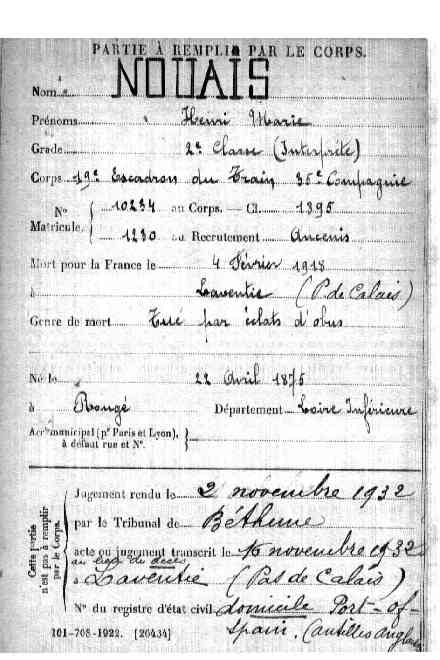 PARTIE À REMPLIR PAR LE CORPS.
Nom NOUAIS
Prénoms Henri Marie
Grade 2e Classe (Interprète)
Corps 19e Escadron du Train 35e Compagnie
No Matricule. { 10234 au Corps. — Cl. 1895
1230 au Recrutement Ancenis
Mort pour la France le 4 Février 1918
à Laventie (P. de Calais)
Genre de mort Tué par éclats d'obus
Né le 22 Avril 1875
à Rougé Département Loire Inférieure
Arrt municipal (pr Paris et Lyon), à défaut rue et No. }
Cette partie n'est pas à remplir par le Corps.
Jugement rendu le 2 novembre 1932
par le Tribunal de Béthune
acte ou jugement transcrit le 16 novembre 1932
au lieu du décès
à Laventie (Pas de Calais)
No du registre d'état civil domicile Port-of-
Spain. (Antilles anglaises
101-708-1922. [20434]